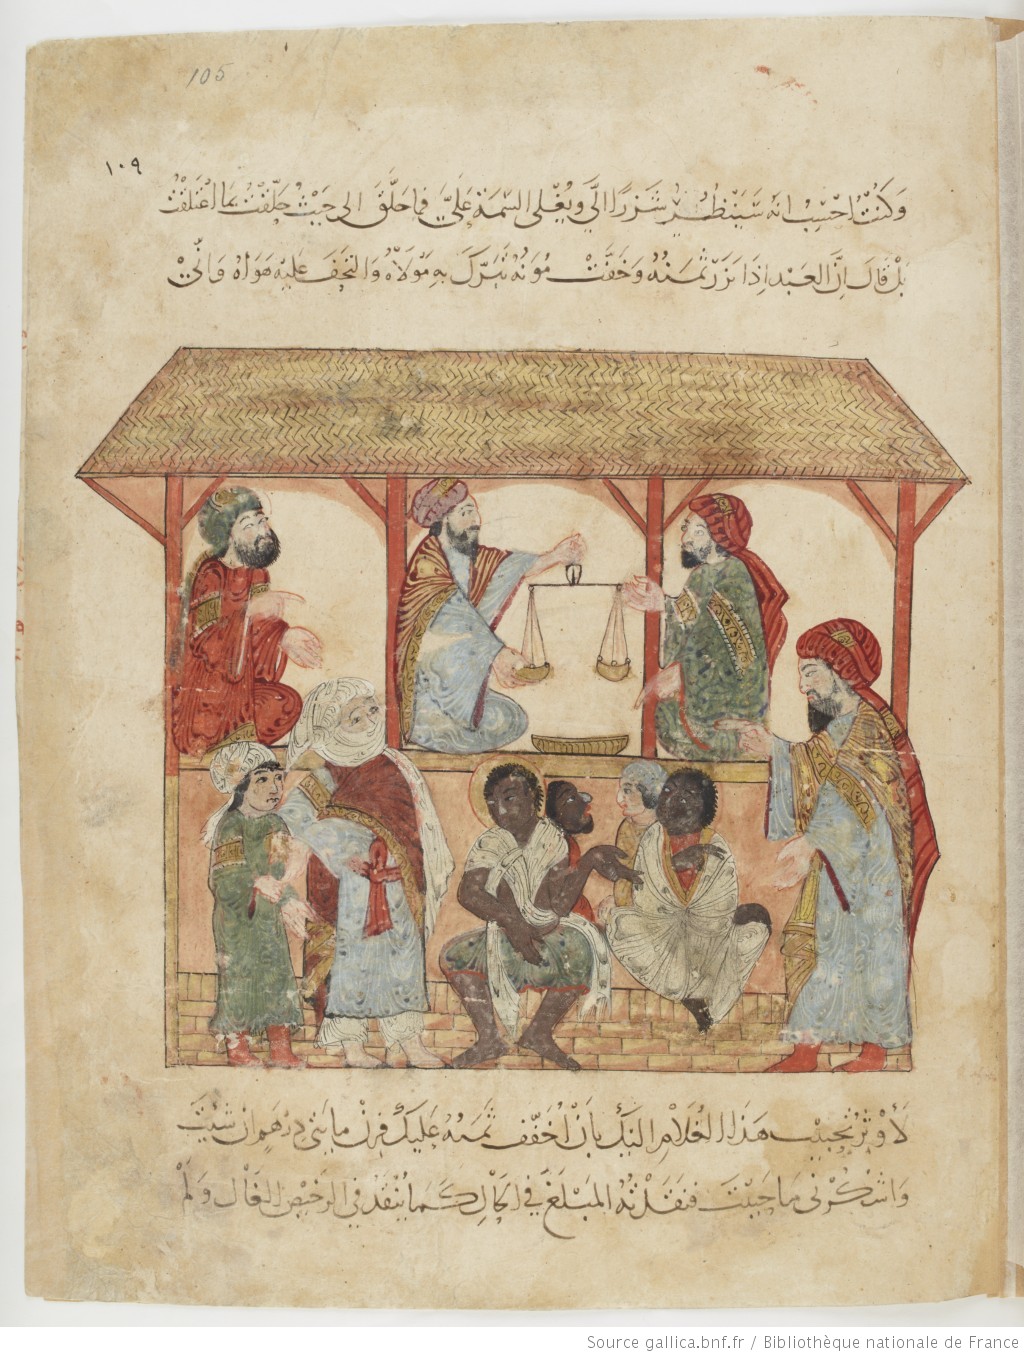 105
١٠٩
وَكُنْتُ اَحْسِبُ انه سَيَنْظُرُ شَزَرًا الَيَّ ويُغْلى السّمة عَليَّ فما حَلَّقَ الى حَيْثُ حَلّقْتُ ولا اعْتَلَقَ
بَلْ قالَ انَّ العَبْد اِذَا نَزَرَ ثَمَنُهُ وَخَفَّتْ مُوَنُهُ تَبَرَّكَ بِهِ مَوْلَاهُ وَالتحَفَ عَلَيْهِ هَوَاهُ وَانّيْ
لَأُوثِرُ تَحْبِيبَ هَذَا الغُلَامِ اليْكَ بِاَنْ اُخَفّفَ ثَمَنُهُ عَلَيْكَ فَزِنْ مايتَىْ دِرْهَم اِنْ شِئتَ
وَاشْكُرْنى مَا حَيِيْتَ فنَقَدْتُهُ المَبْلَغَ في الحَالِ كَمَا يُنْقَدُ في الرّخِيْصِ الغَالِ وَلَمْ
Source gallica.bnf.fr / Bibliothèque nationale de France